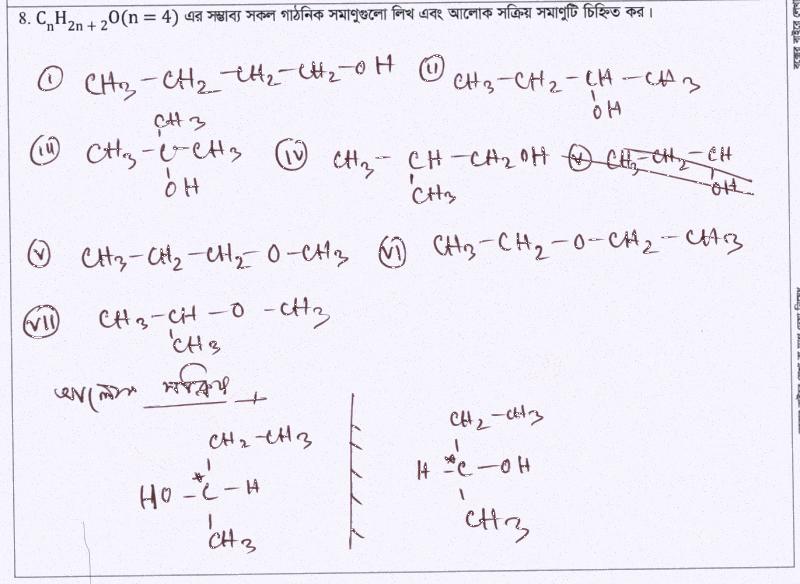 8. CₙH₂ₙ₊₂O(n = 4) এর সম্ভাব্য সকল গাঠনিক সমাণুগুলো লিখ এবং আলোক সক্রিয় সমাণুটি চিহ্নিত কর।
(i) CH3 – CH2 – CH2 – CH2 – OH (ii) CH3 – CH2 – CH – CH3
OH
CH3
(iii) CH3 – C – CH3 (iv) CH3 – CH – CH2OH (v) CH3 – CH2 – CH
OH CH3 OH
(v) CH3 – CH2 – CH2 – O – CH3 (vi) CH3 – CH2 – O – CH2 – CH3
(vii) CH3 – CH – O – CH3
CH3
আলোক সক্রিয়
CH2 – CH3 CH2 – CH3
HO – C* – H H – C* – OH
CH3 CH3